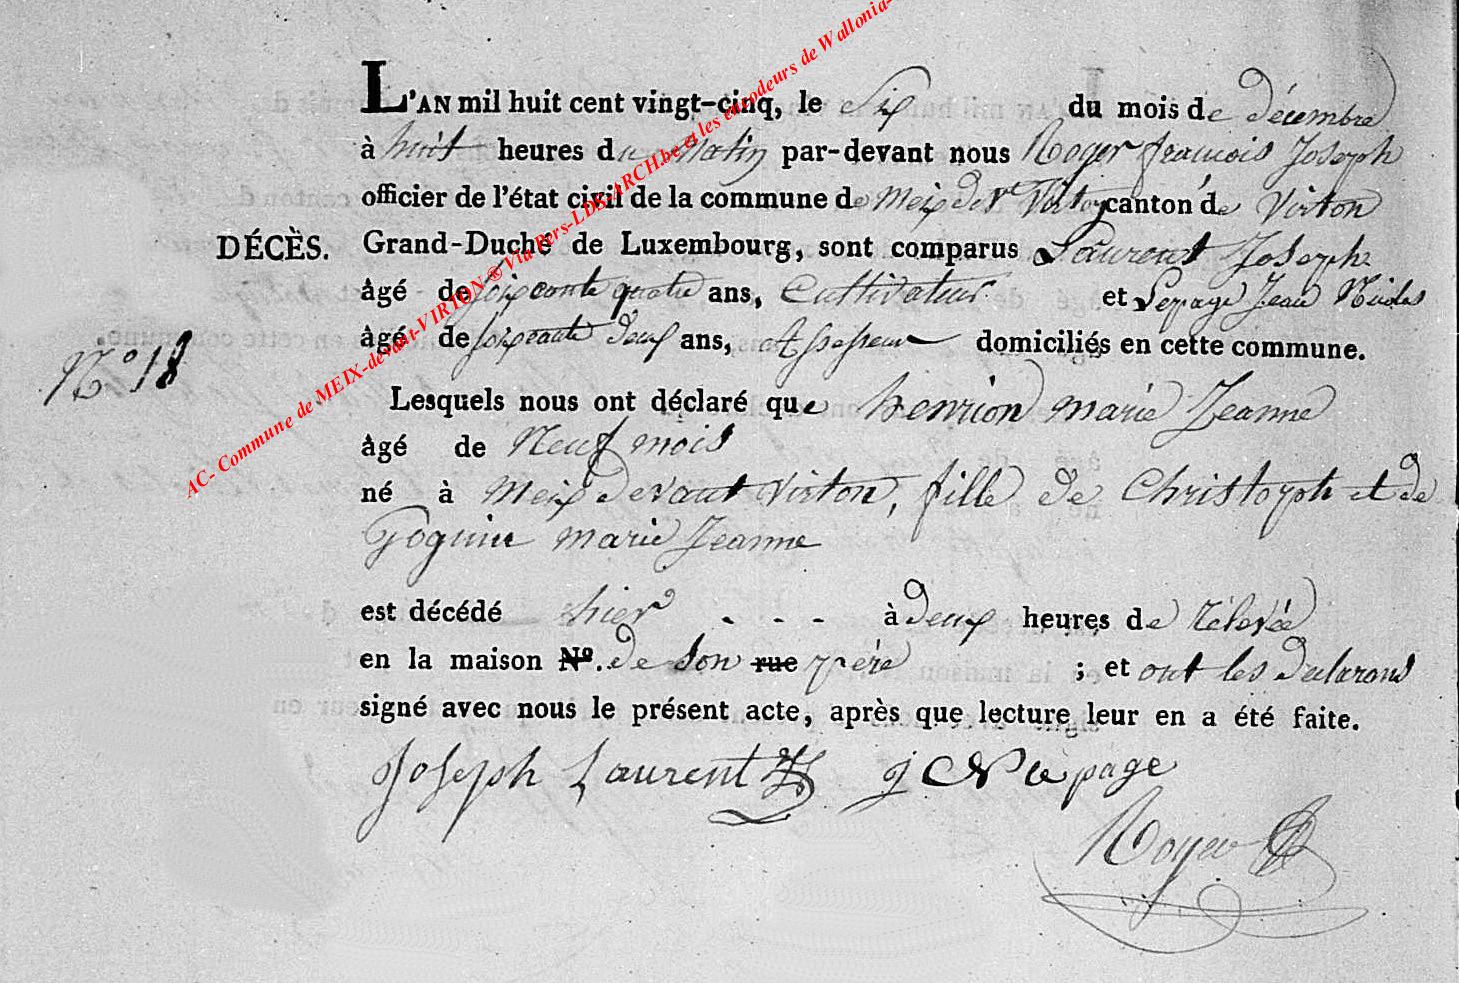 L'AN mil huit cent vingt-cinq, le Six du mois de décembre
à huit heures du Matin par-devant nous Roger francois Joseph
officier de l'état civil de la commune de Meix devt Virton canton de Virton
DÉCÈS. Grand-Duché de Luxembourg, sont comparus Laurent Joseph
âgé de soixante quatre ans, Cultivateur et Lepage Jean Nicolas
âgé de soixante deux ans, assesseur domiciliés en cette commune.
N° 18
Lesquels nous ont déclaré que henrion marie Jeanne
âgé de Neuf mois
né à Meix devant Virton, fille de Christoph et de
Goguin marie Jeanne
est décédé hier - - - à deux heures de relevée
en la maison N°. de son rue père ; et ont les declarans
signé avec nous le présent acte, après que lecture leur en a été faite.
Joseph Laurent j N Lepage
Roger
AC- Commune de MEIX-devant-VIRTON ® Via Pers-LDS-ARCH.be et les encodeurs de Wallonia-